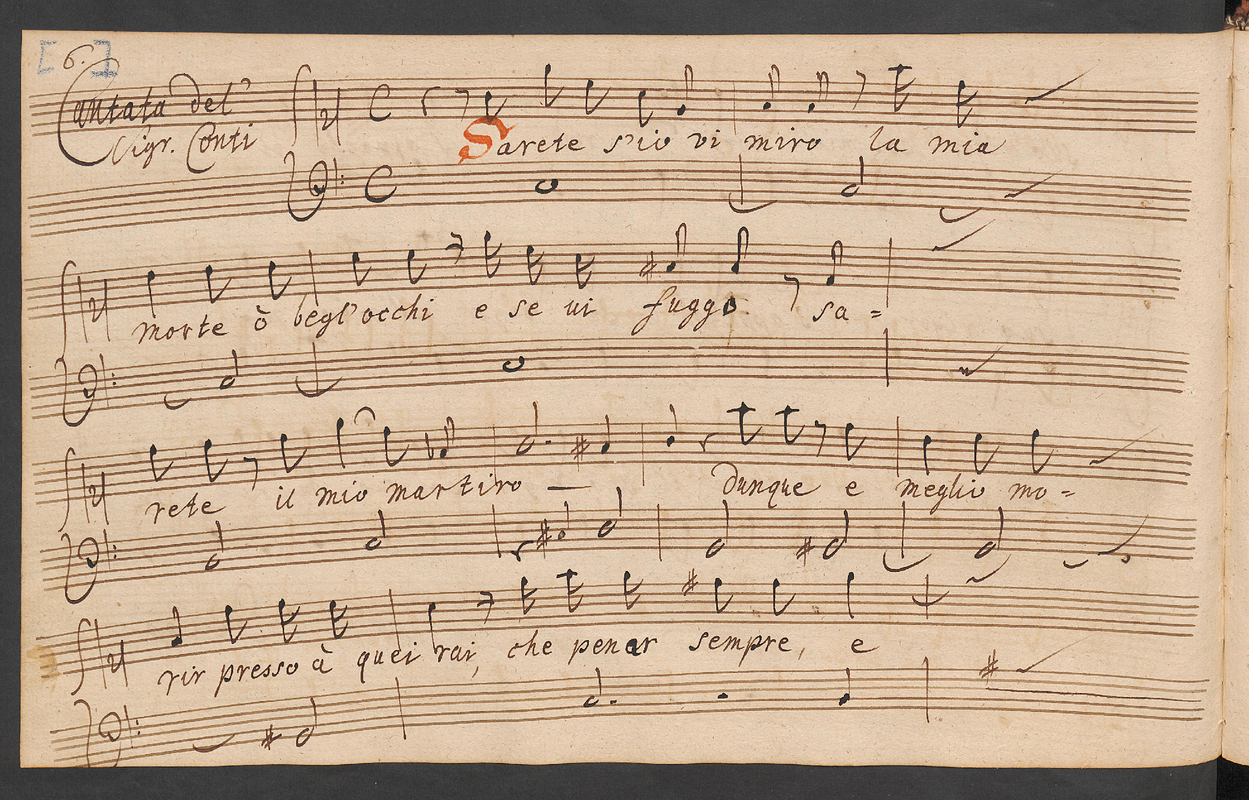 [6.]
Cantata del
Sigr. Conti
Sarete s'io vi miro la mia
morte ò begl'occhi e se vi fuggo sa=
rete il mio martiro — Dunque e meglio mo=
rir presso à quei rai, che penar sempre, e